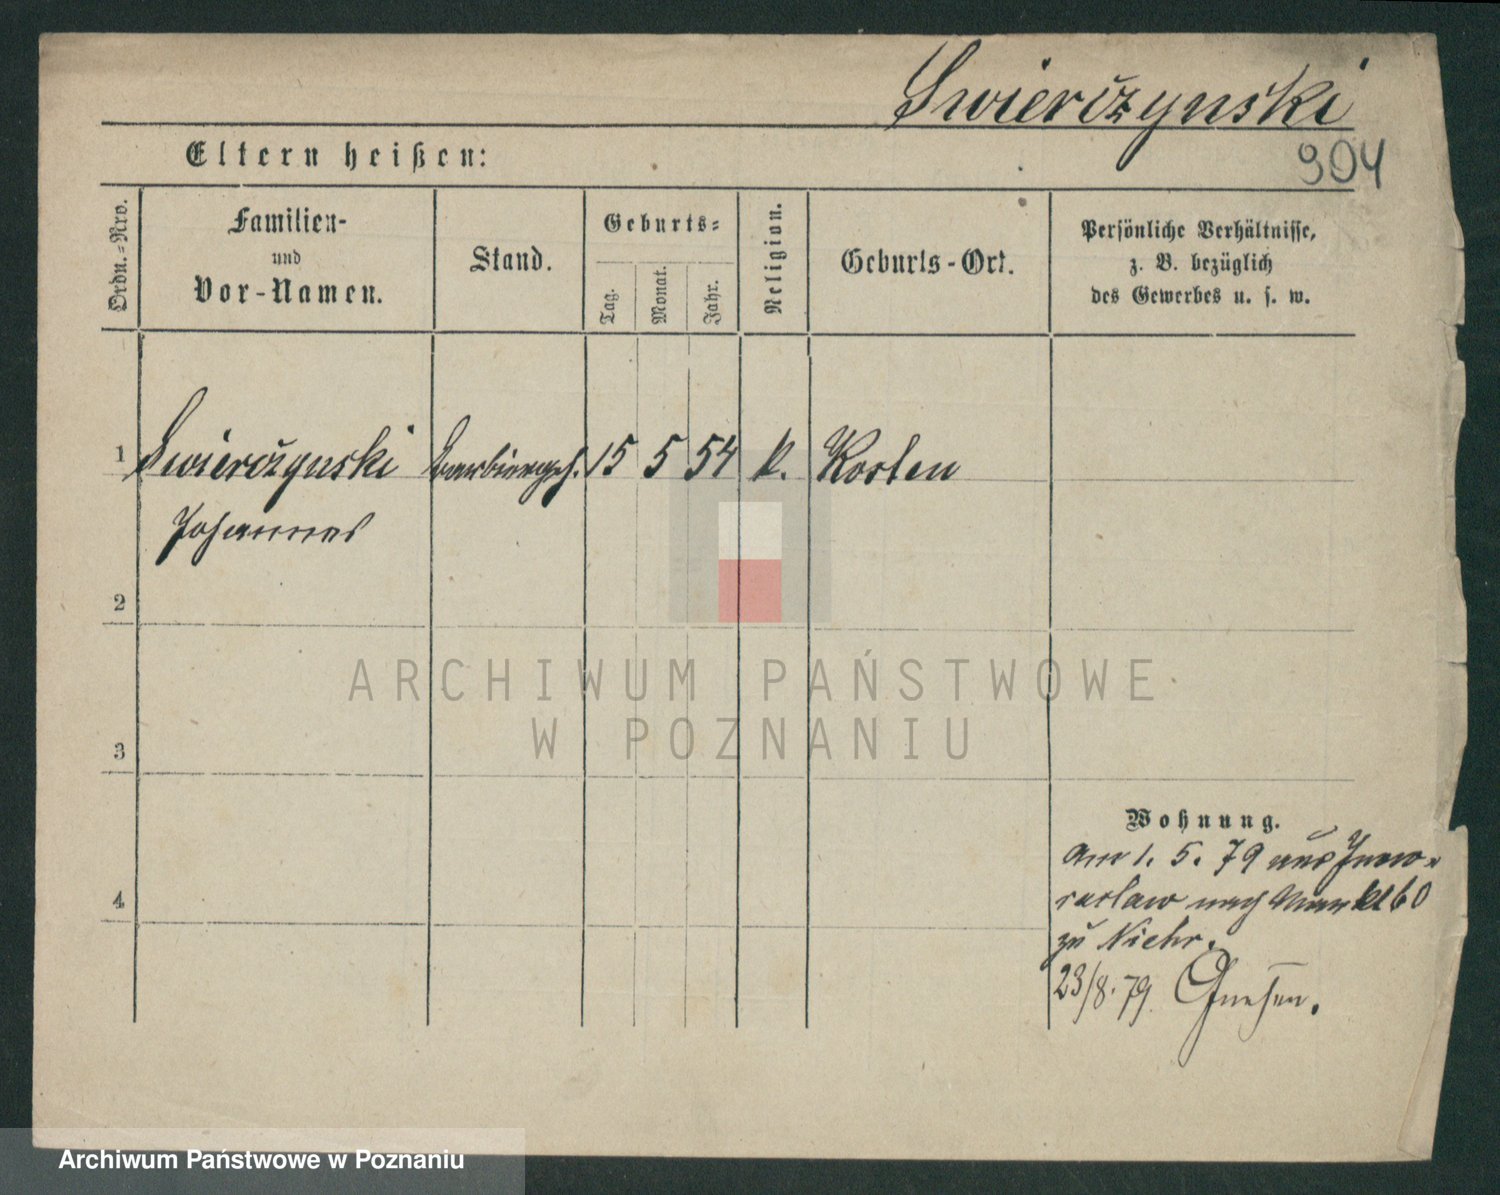 Swierczynski
904
Eltern heißen:
Ordn.-Nro.
Familien-
und
Vor-Namen.
Stand.
Geburts-
Tag.
Monat.
Jahr.
Religion.
Geburts-Ort.
Persönliche Verhältnisse,
z. B. bezüglich
des Gewerbes u. s. w.
1 Swierczynski Barbiergeh. 15 5 54 k. Kosten
Johannes
2
3
4
Wohnung.
Am 1. 5. 79 aus Inow-
raclaw nach Markt 60
zu Niehr.
23/8. 79. Gnesen.
ARCHIWUM PAŃSTWOWE
W POZNANIU
Archiwum Państwowe w Poznaniu